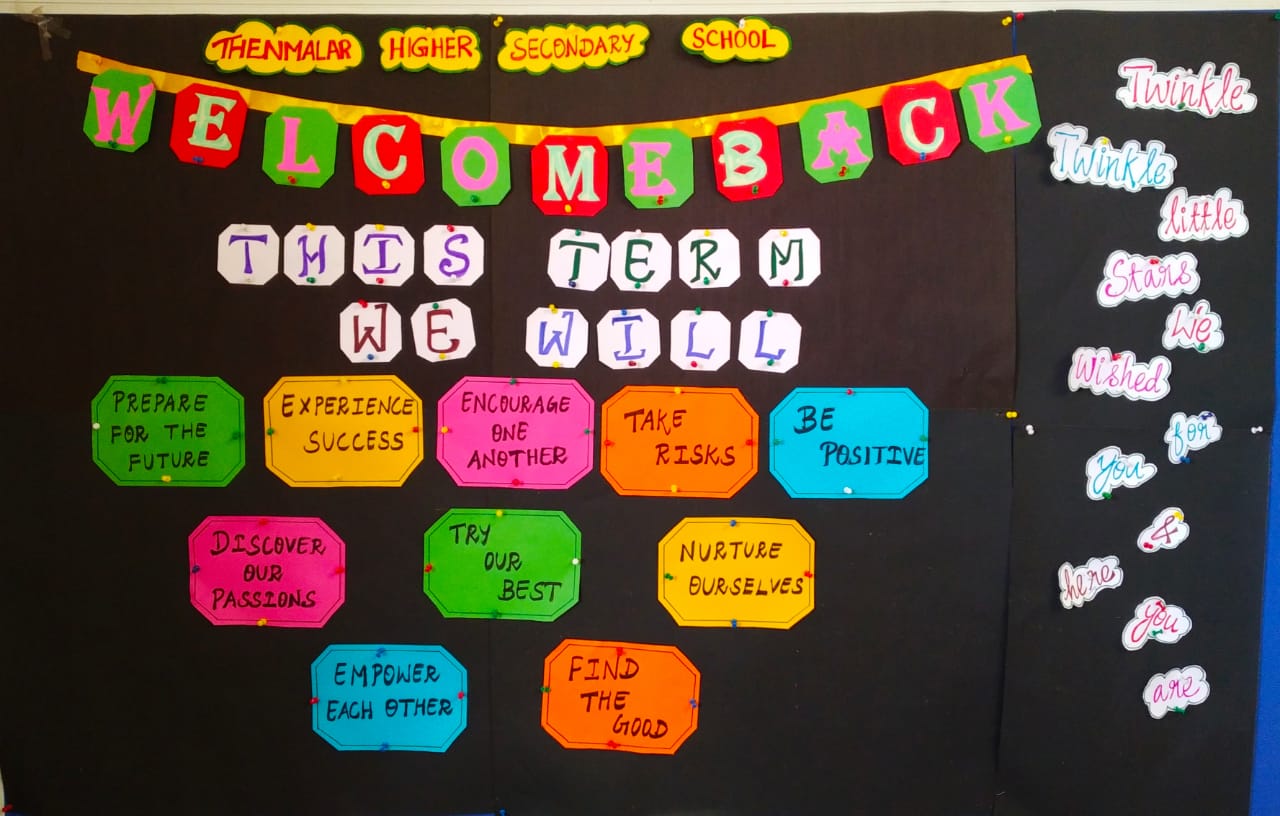 THENMALAR HIGHER SECONDARY SCHOOL
WELCOME BACK
THIS TERM
WE WILL
PREPARE
FOR THE
FUTURE
EXPERIENCE
SUCCESS
ENCOURAGE
ONE
ANOTHER
TAKE
RISKS
BE
POSITIVE
DISCOVER
OUR
PASSIONS
TRY
OUR
BEST
NURTURE
OURSELVES
EMPOWER
EACH OTHER
FIND
THE
GOOD
Twinkle
Twinkle
little
Stars
We
Wished
for
You
&
here
you
are